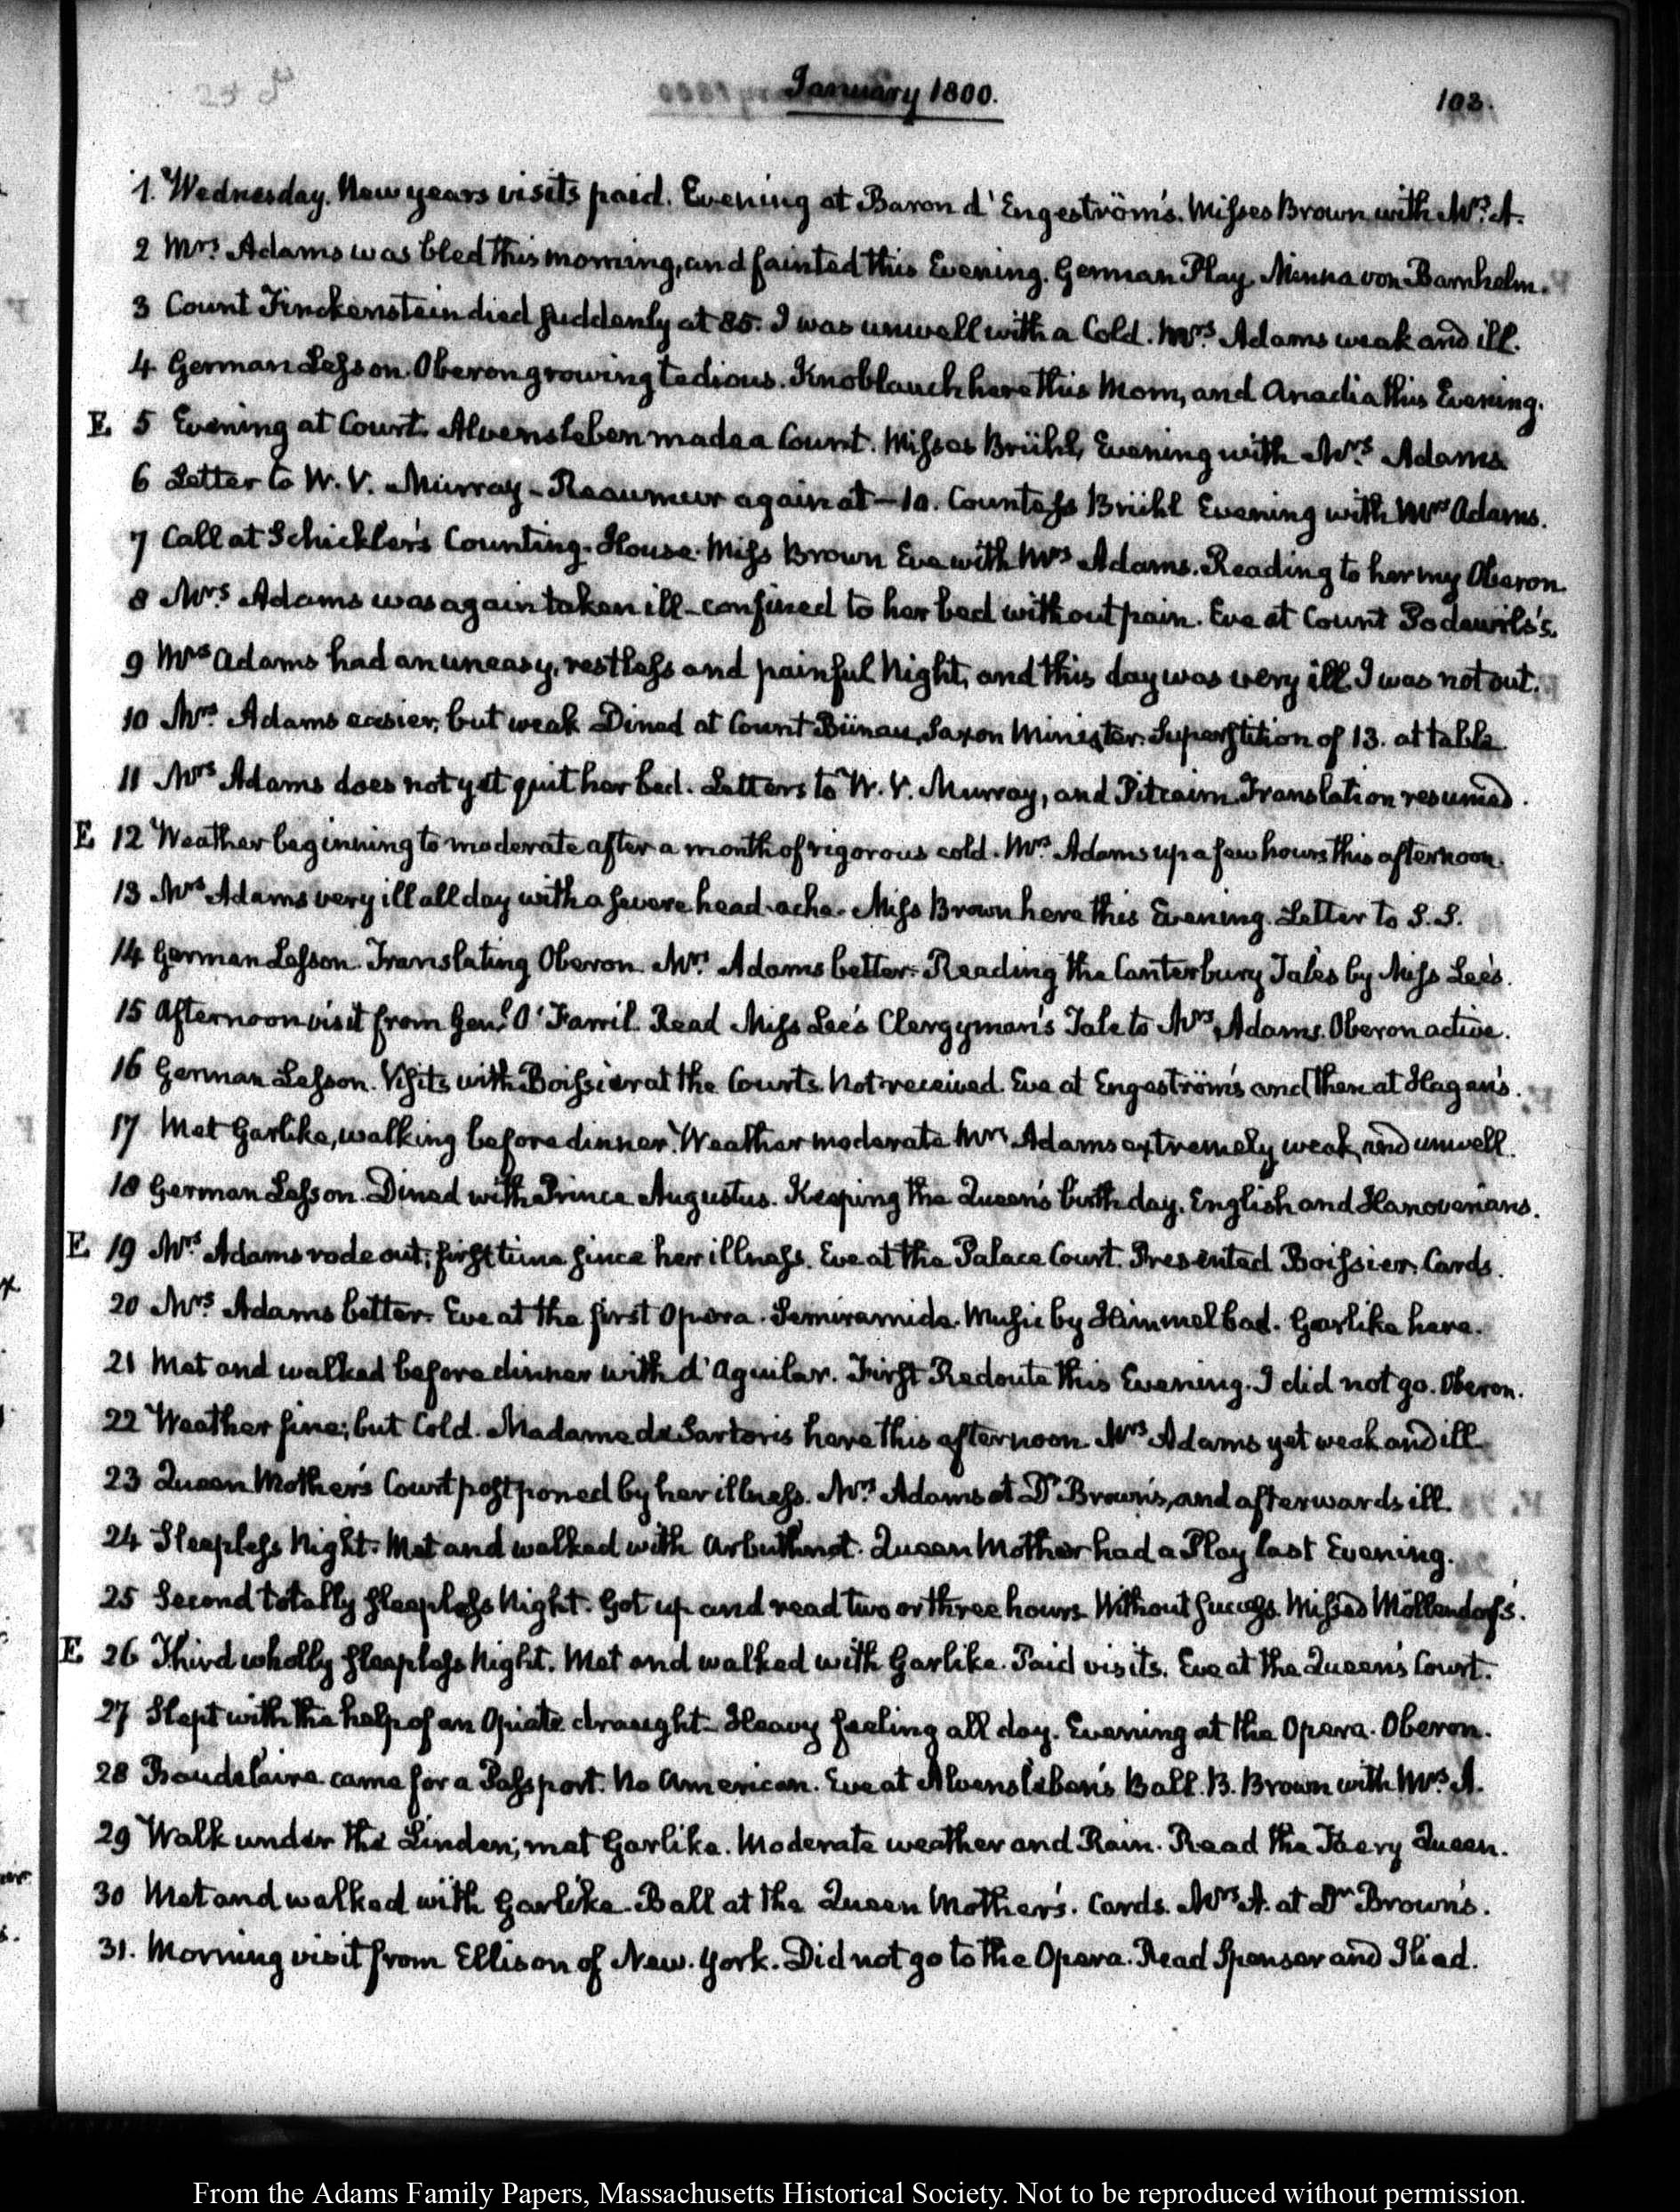 January 1800.
103.
1. Wednesday. New years visits paid. Evening at Baron d'Engeström's. Misses Brown with Mrs. A.
2 Mrs. Adams was bled this morning, and fainted this Evening. German Play. Minna von Barnhelm.
3 Count Finckenstein died suddenly at 85. I was unwell with a Cold. Mrs. Adams weak and ill.
4 German Lesson. Oberon growing tedious. Knoblauch here this Morn, and Anadia this Evening.
E 5 Evening at Court. Alvensleben made a Count. Misses Brühl, Evening with Mrs. Adams
6 Letter to W. V. Murray - Reaumur again at -10. Countess Brühl Evening with Mrs Adams.
7 Call at Schickler's Counting-House. Miss Brown Eve with Mrs Adams. Reading to her my Oberon.
8 Mrs. Adams was again taken ill - confined to her bed without pain. Eve at Count Podewils's.
9 Mrs Adams had an uneasy, restless and painful Night, and this day was very ill. I was not out.
10 Mrs. Adams easier, but weak. Dined at Count Bünau, Saxon Minister. Superstition of 13. at table.
11 Mrs Adams does not yet quit her bed. Letters to W. V. Murray, and Pitcairn. Translation resumed.
E 12 Weather beginning to moderate after a month of rigorous cold. Mrs. Adams up a few hours this afternoon.
13 Mrs Adams very ill all day with a severe head-ache. Miss Brown here this Evening. Letter to S.S.
14 German Lesson. Translating Oberon. Mrs. Adams better. Reading the Canterbury Tales by Miss Lee's.
15 Afternoon visit from Genl. O'Farril. Read Miss Lee's Clergyman's Tale to Mrs. Adams. Oberon active.
16 German Lesson. Visits with Boissier at the Courts. Not received. Eve at Engeström's and then at Hagen's.
17 Met Garlike, walking before dinner. Weather moderate. Mrs Adams extremely weak, and unwell.
18 German Lesson. Dined with Prince Augustus. Keeping the Queen's birth day. English and Hanoverians.
E 19 Mrs. Adams rode out; first time since her illness. Eve at the Palace Court. Presented Boissier. Cards.
20 Mrs Adams better. Eve at the first Opera. Semiramide. Music by Himmel bad. Garlike here.
21 Met and walked before dinner with d'Aguilar. First Redoute this Evening. I did not go. Oberon.
22 Weather fine; but Cold. Madame de Sartoris here this afternoon. Mrs Adams yet weak and ill.
23 Queen Mother's Court postponed by her illness. Mrs. Adams at Dr Brown's, and afterwards ill.
24 Sleepless Night. Met and walked with Arbuthnot. Queen Mother had a Play last Evening.
25 Second totally sleepless Night. Got up and read two or three hours. Without success. Missed Möllendorf's.
E 26 Third wholly sleepless Night. Met and walked with Garlike. Paid visits. Eve at the Queen's Court.
27 Slept with the help of an Opiate draught. Heavy feeling all day. Evening at the Opera. Oberon.
28 Baudelaire came for a Passport. No American. Eve at Alvensleben's Ball. B. Brown with Mrs A.
29 Walk under the Linden; met Garlike. Moderate weather and Rain. Read the Faery Queen.
30 Met and walked with Garlike. Ball at the Queen Mother's. Cards. Mrs A. at Dr Brown's.
31. Morning visit from Ellison of New-York. Did not go to the Opera. Read Spenser and Iliad.
From the Adams Family Papers, Massachusetts Historical Society. Not to be reproduced without permission.